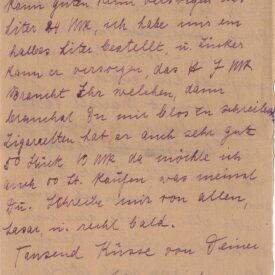 kann guten Rum versorgen das
Liter 24 MK, ich habe mir ein
halbes Liter bestellt, u. Zucker
kann er versorgen, das 7 MK
Braucht Ihr welchen, dann
brauchst Du mir blos zu schreiben
Zigaretten hat er auch sehr gut
50 Stück 10 MK da möchte ich
auch 00 St. kaufen was meinst
Du. Schreibe mir von allen,
u. recht bald.
Tausend Küsse von Deiner